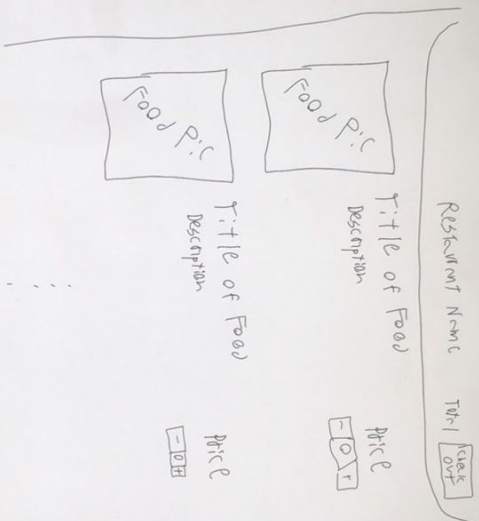 Restaurant Name Total Check
out
Food Pic
Title of Food
Description
Price
- 0 +
Food Pic
Title of Food
Description
Price
- 0 +